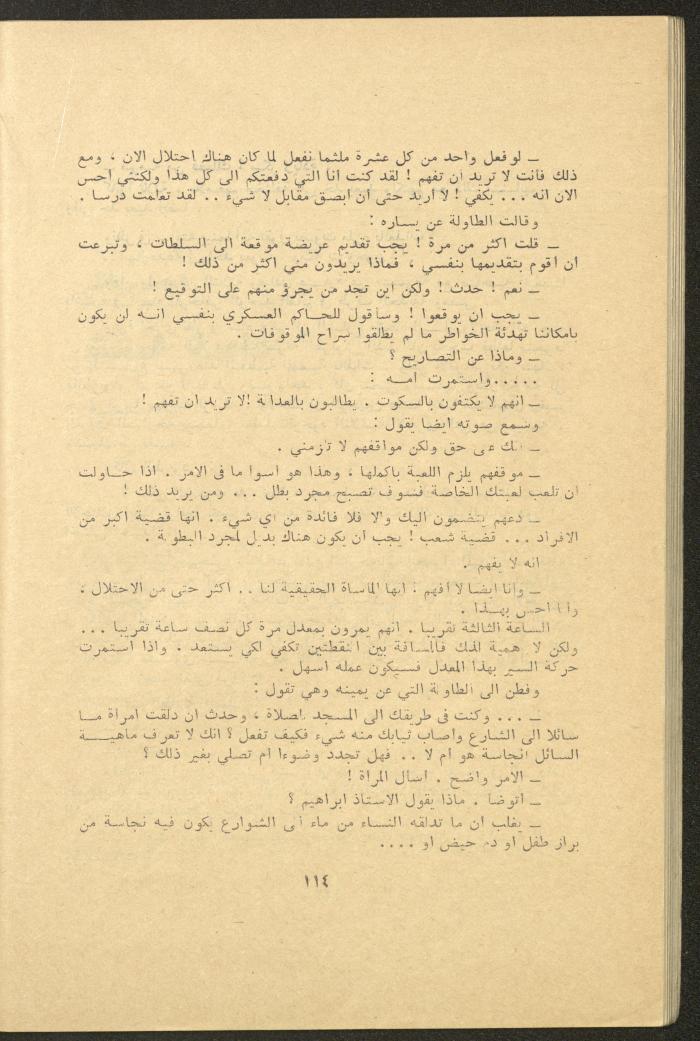 ــ لو فعل واحد من كل عشرة مثلما نفعل لما كان هناك احتلال الان ، ومع
ذلك فانت لا تريد ان تفهم ! لقد كنت انا التي دفعتكم الى كل هذا ولكنني احس
الان انه ... يكفي ! لا اريد حتى ان ابصق مقابل لا شيء .. لقد تعلمت درسا .
وقالت الطاولة عن يساره :
ــ قلت اكثر من مرة ! يجب تقديم عريضة موقعة الى السلطات ، وتبرعت
ان اقوم بتقديمها بنفسي ، فماذا يريدون مني اكثر من ذلك !
ــ نعم ! حدث ! ولكن اين تجد من يجرؤ منهم على التوقيع !
ــ يجب ان يوقعوا ! وساقول للحاكم العسكري بنفسي انه لن يكون
بامكاننا تهدئة الخواطر ما لم يطلقوا سراح الموقوفات .
ــ وماذا عن التصاريح ؟
.....واستمرت امه :
ــ انهم لا يكتفون بالسكوت . يطالبون بالعدالة ! لا تريد ان تفهم !
وسمع صوته ايضا يقول :
ــ انك على حق ولكن مواقفهم لا تلزمني .
ــ موقفهم يلزم اللعبة باكملها ، وهذا هو اسوا ما في الامر . اذا حاولت
ان تلعب لعبتك الخاصة فسوف تصبح مجرد بطل ... ومن يريد ذلك !
ــ دعهم ينضمون اليك والا فلا فائدة من اي شيء . انها قضية اكبر من
الافراد ... قضية شعب ! يجب ان يكون هناك بديل لمجرد البطولة .
انه لا يفهم .
ــ وانا ايضا لا افهم ! انها الماساة الحقيقية لنا .. اكثر حتى من الاحتلال ،
وانا احس بهذا .
الساعة الثالثة تقريبا . انهم يمرون بمعدل مرة كل نصف ساعة تقريبا ...
ولكن لا همية لذلك فالمسافة بين النقطتين تكفي لكي يستعد . واذا استمرت
حركة السير بهذا المعدل فسيكون عمله اسهل .
وفطن الى الطاولة التي عن يمينه وهي تقول :
ــ ... وكنت في طريقك الى المسجد لصلاة ، وحدث ان دلقت امراة ما
سائلا الى الشارع واصاب ثيابك منه شيء فكيف تفعل ؟ انك لا تعرف ماهية
السائل انجاسة هو ام لا .. فهل تجدد وضوءا ام تصلي بغير ذلك ؟
ــ الامر واضح . اسال المراة !
ــ اتوضا . ماذا يقول الاستاذ ابراهيم ؟
ــ يغلب ان ما تدلقه النساء من ماء الى الشوارع يكون فيه نجاسة من
براز طفل او دم حيض او ....
١١٤